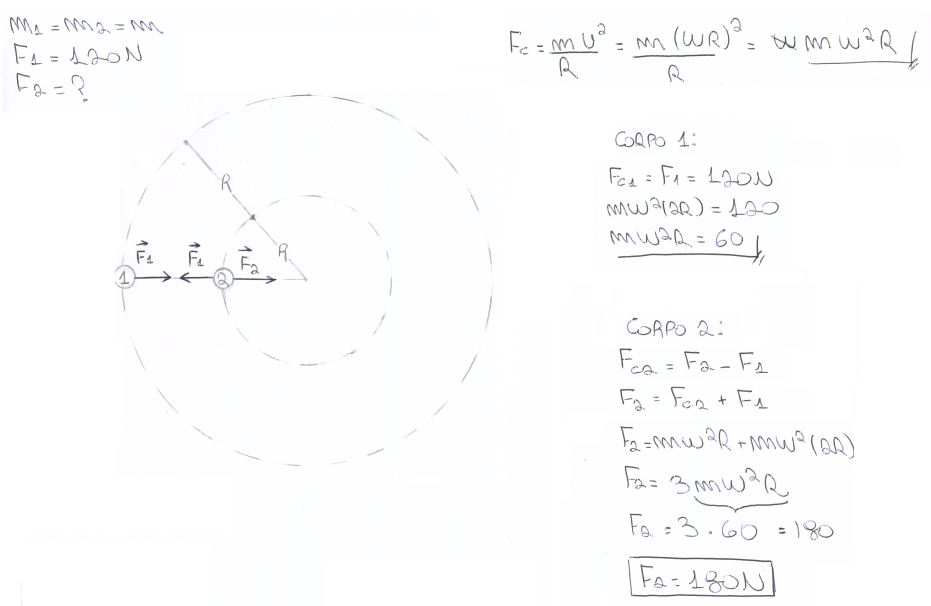 m1 = m2 = m
F1 = 120N
F2 = ?
Fc = mv²/R = m(WR)²/R = mw²R
R
R
F1
F1
F2
1
2
CORPO 1:
Fc1 = F1 = 120N
mw²(2R) = 120
mw²R = 60
CORPO 2:
Fc2 = F2 - F1
F2 = Fc2 + F1
F2 = mw²R + mw²(2R)
F2 = 3mw²R
F2 = 3 . 60 = 180
F2 = 180N